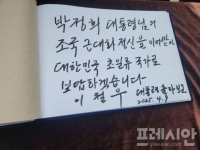 박정희 대통령님의
조국 근대화 정신을 이어받아
대한민국 초일류 국가로
보답하겠습니다
이철우
2025. 4. 9
프레시안